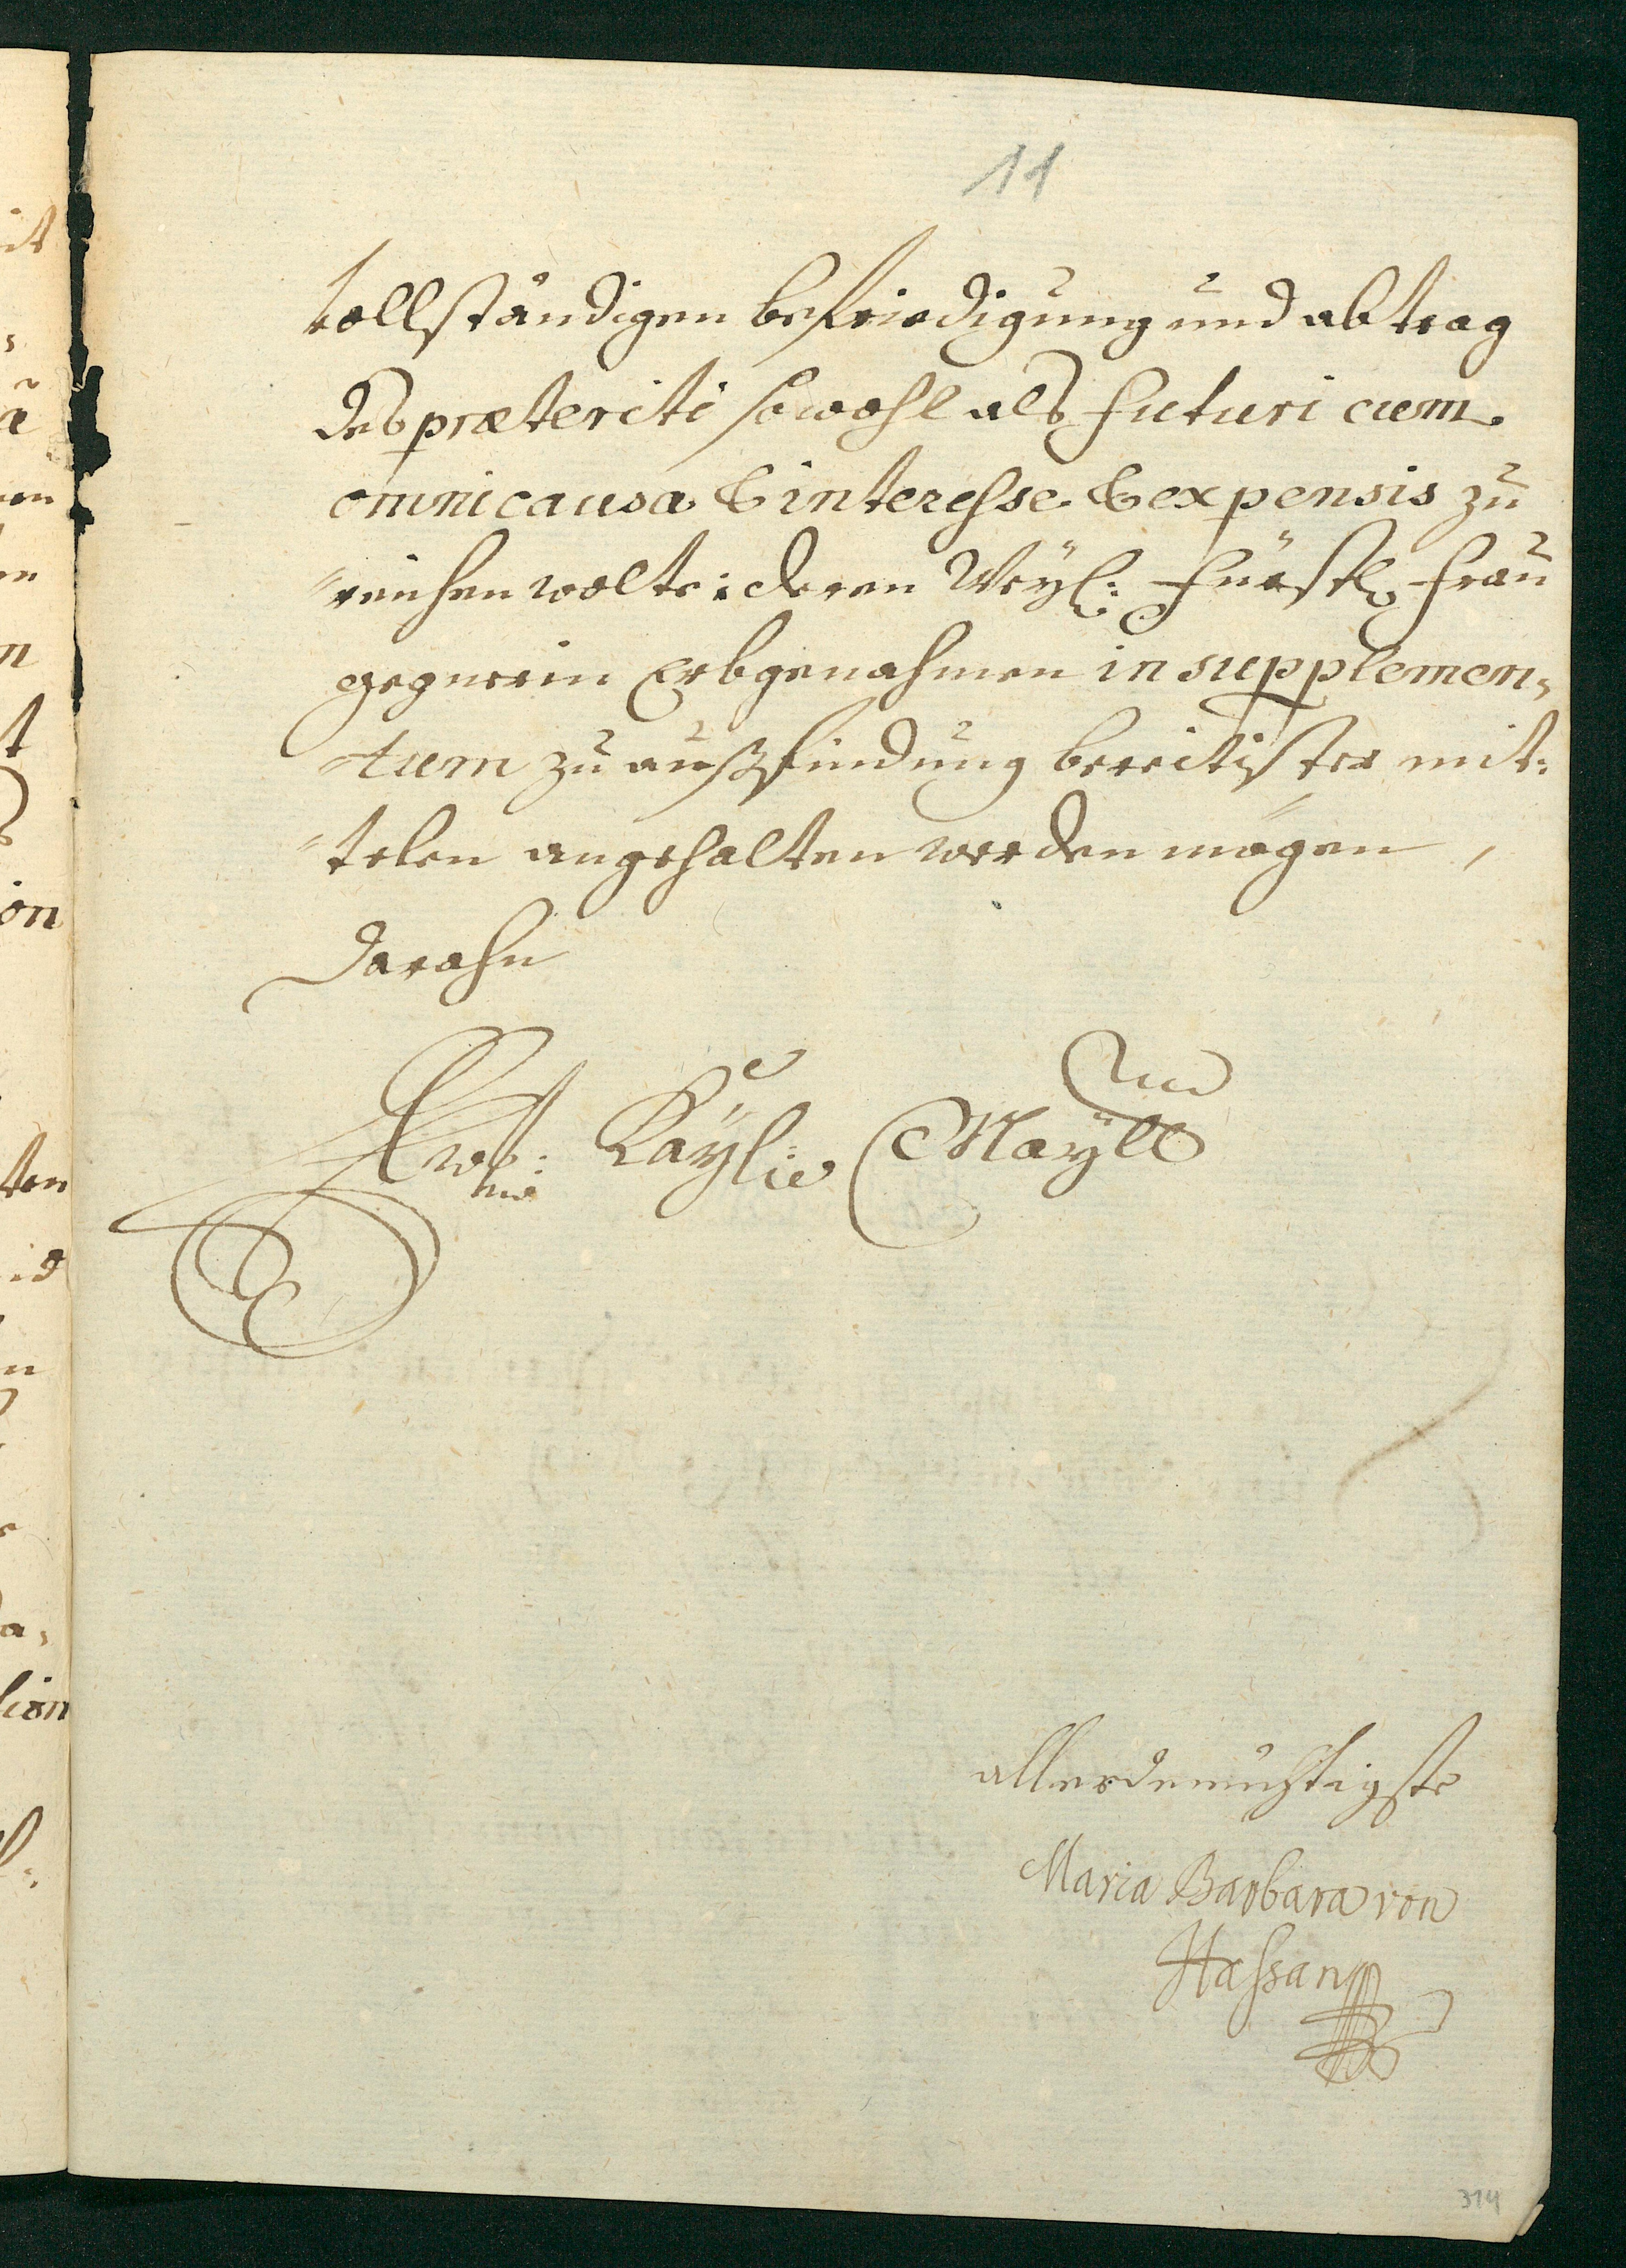 11
vollständigen befriedigung und abtrag
des præteriti sowohl als futuri cum
omni causa & interesse & expensis zu
reichen wolte: deren Weyl: Fürstl. Frau
gegnerin Erbgenahmen in supplemen„
tum zu außfindung bereitister mit:
telen angehalten werden mögen,
Darahn
Ewr: Kayl: Mayll
allerdemühtigste
Maria Barbara von
Hassan
314